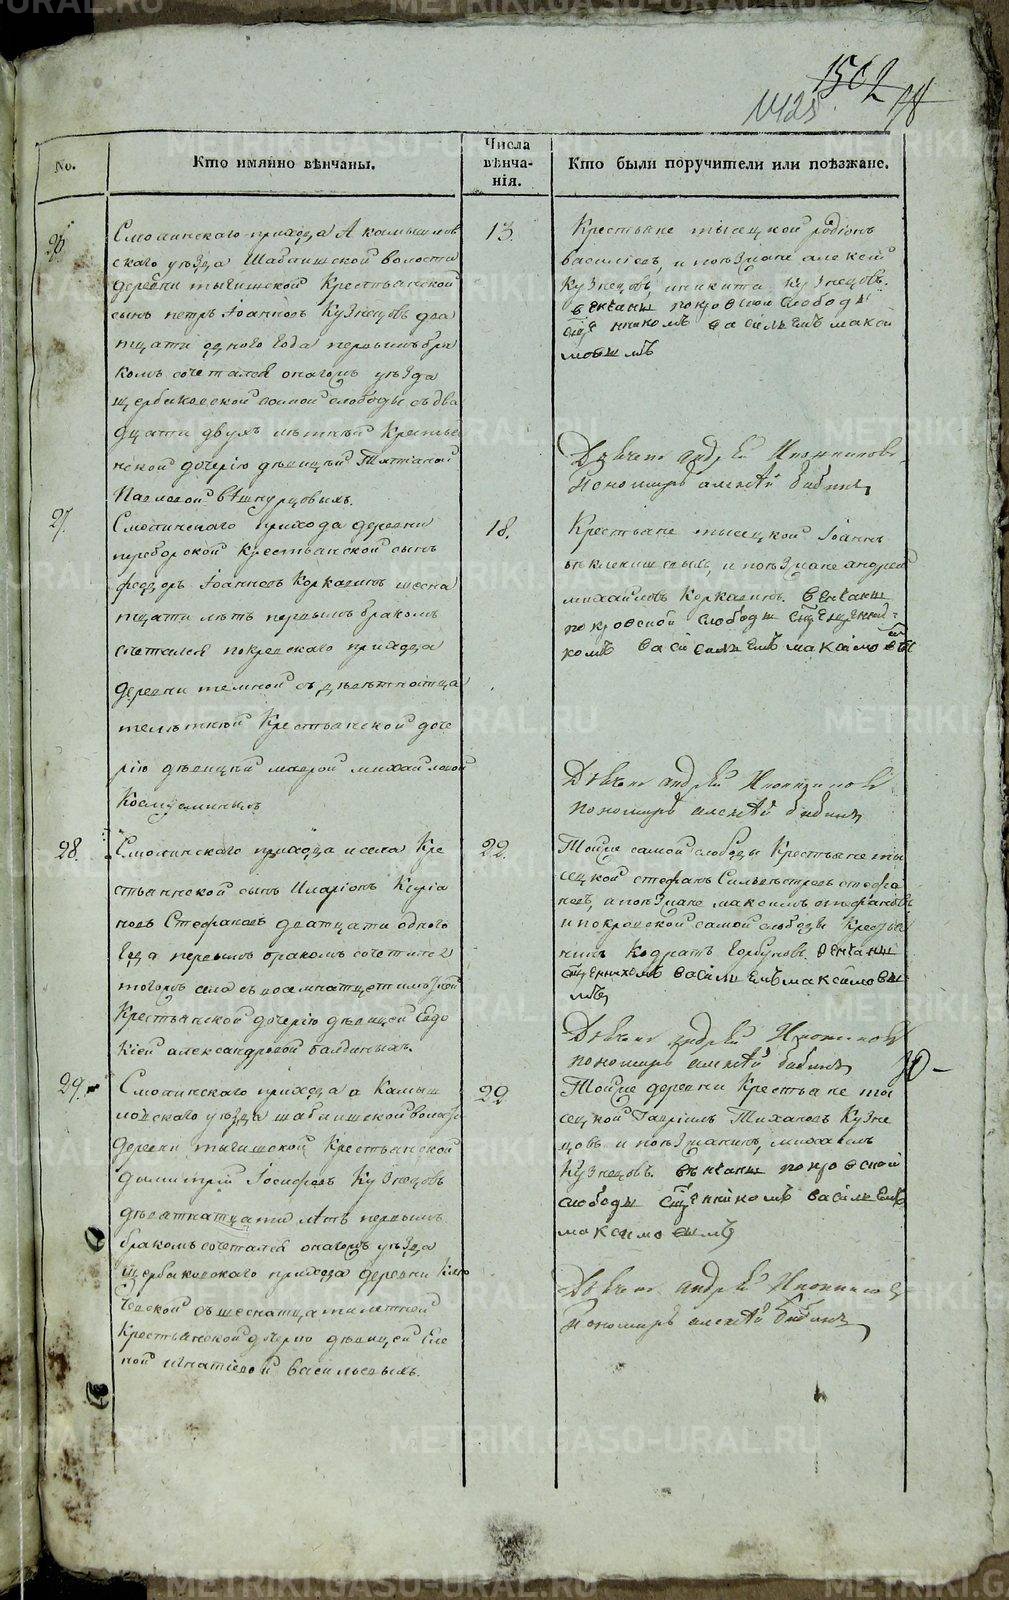 1502
1425
98
No.
Кто имянно вѣнчаны.
Числа вѣнча-
нія.
Кто были поручители или поѣзжане.
26.
Смолинскаго прихода А камышлов
скаго уѣзда Шаблишской волости
деревни тыгишской Крестьянской
сынъ петръ Іоанновъ Кузнецовъ два
тцати одного года первымъ бра
комъ сочетался онагожъ уѣзда
щербаковской самой слободы съ два
дцати двухъ лѣтней Крестья
нской дочерію дѣвицей Татіаной
Павловой
13.
Крестьяне тысецкой родіонъ
василіевъ, и поѣзжане алексей
Кузнецовъ, и никита Кузнецовъ.
венчаны покровской слободы
сщенникомъ василіемъ макси
мовымъ
Дьячекъ андрей
Пономарь алексѣй бибинъ
27.
Смолинскаго прихода деревни
переборской Крестьянской сынъ
феодоръ Іоанновъ Коркадинъ шесна
тцати лѣтъ первымъ бракомъ
сочетался покровскаго прихода
деревни темной съ девятнатца
телѣтней Крестьянской доче
рію дѣвицей маврой михайловой
Космуаминыхъ
18.
Крестьяне тысецкой Іоаннъ
и поѣзжане андрей
михайловъ Коркадинъ. венчаны
покровской слободы сщенни
комъ василіемъ максимовы
Дьячекъ андрей
пономарь алексѣй бибинъ
28.
Смолинскаго прихода и села Кре
стьянской сынъ Иларіонъ Киріа
ковъ Стефановъ дватцати одного
года первымъ бракомъ сочетался
тогожъ села съ восемнатцатилѣтней
Крестьянской дочерію дѣвицей Евдо
кіей александровой балдиныхъ.
22.
Тойже самой слободы Крестьяне ты
сецкой стефанъ Сильвестровъ стефа
новъ, а поѣзжане максимъ стефановъ
и покровской самой слободы Крестья
нинъ Кодратъ Горбуновъ. венчаны
сщенникомъ василіемъ максимовы
мъ
Дьячекъ андрей
пономарь алексѣй бибинъ
30-
29.
Смолинскаго прихода а Камыш
ловскаго уѣзда шаблишской волости
деревни тыгишской Крестьянской
димитрій Іосифовъ Кузнецовъ
девятнатцати лѣтъ первымъ
бракомъ сочетался онагожъ уѣзда
щербаковскаго прихода деревни Клю
чевской съ шеснатцатилетней
Крестьянской дочерію дѣвицей еле
ной игнатіевой васильевыхъ.
22
Тойже деревни Крестьяне ты
сецкой Гавріилъ Тихановъ Кузне
цовъ и поѣзжанинъ, михаилъ
Кузнецовъ. венчаны покровской
слободы сщенникомъ василіемъ
максимовымъ
Дьячекъ андрей
Пономарь алексѣй бибинъ
METRIKI.GASO-URAL.RU